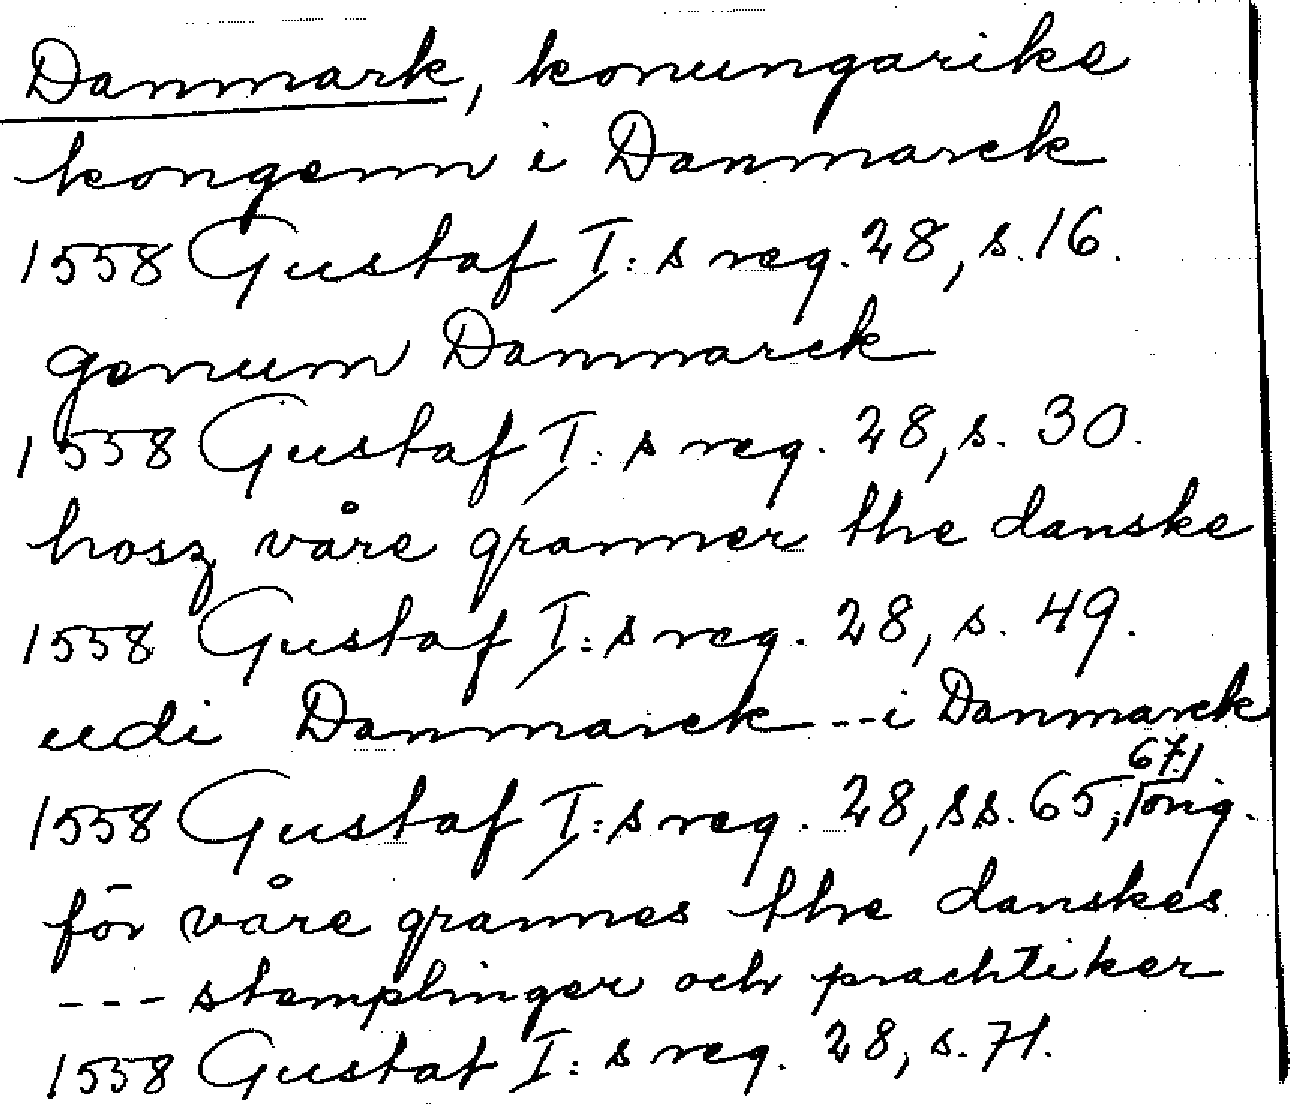 Danmark, konungarike
kongenn i Danmarck
1558 Gustaf I:s reg. 28, s. 16.
genum Danmarck
1558 Gustaf I:s reg. 28, s. 30.
hosz våre granner the danske
1558 Gustaf I:s reg. 28, s. 49.
udi Danmarck --- i Danmarck
1558 Gustaf I:s reg. 28, ss. 65, 67.
för våre grannes the danskes
--- stemplinger och prachtiker
1558 Gustaf I:s reg. 28, s. 71.